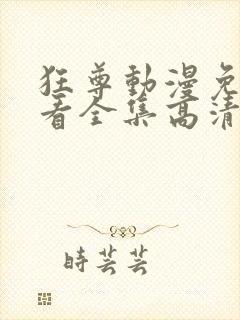 狂尊動漫免
看全集高清
時芸芸